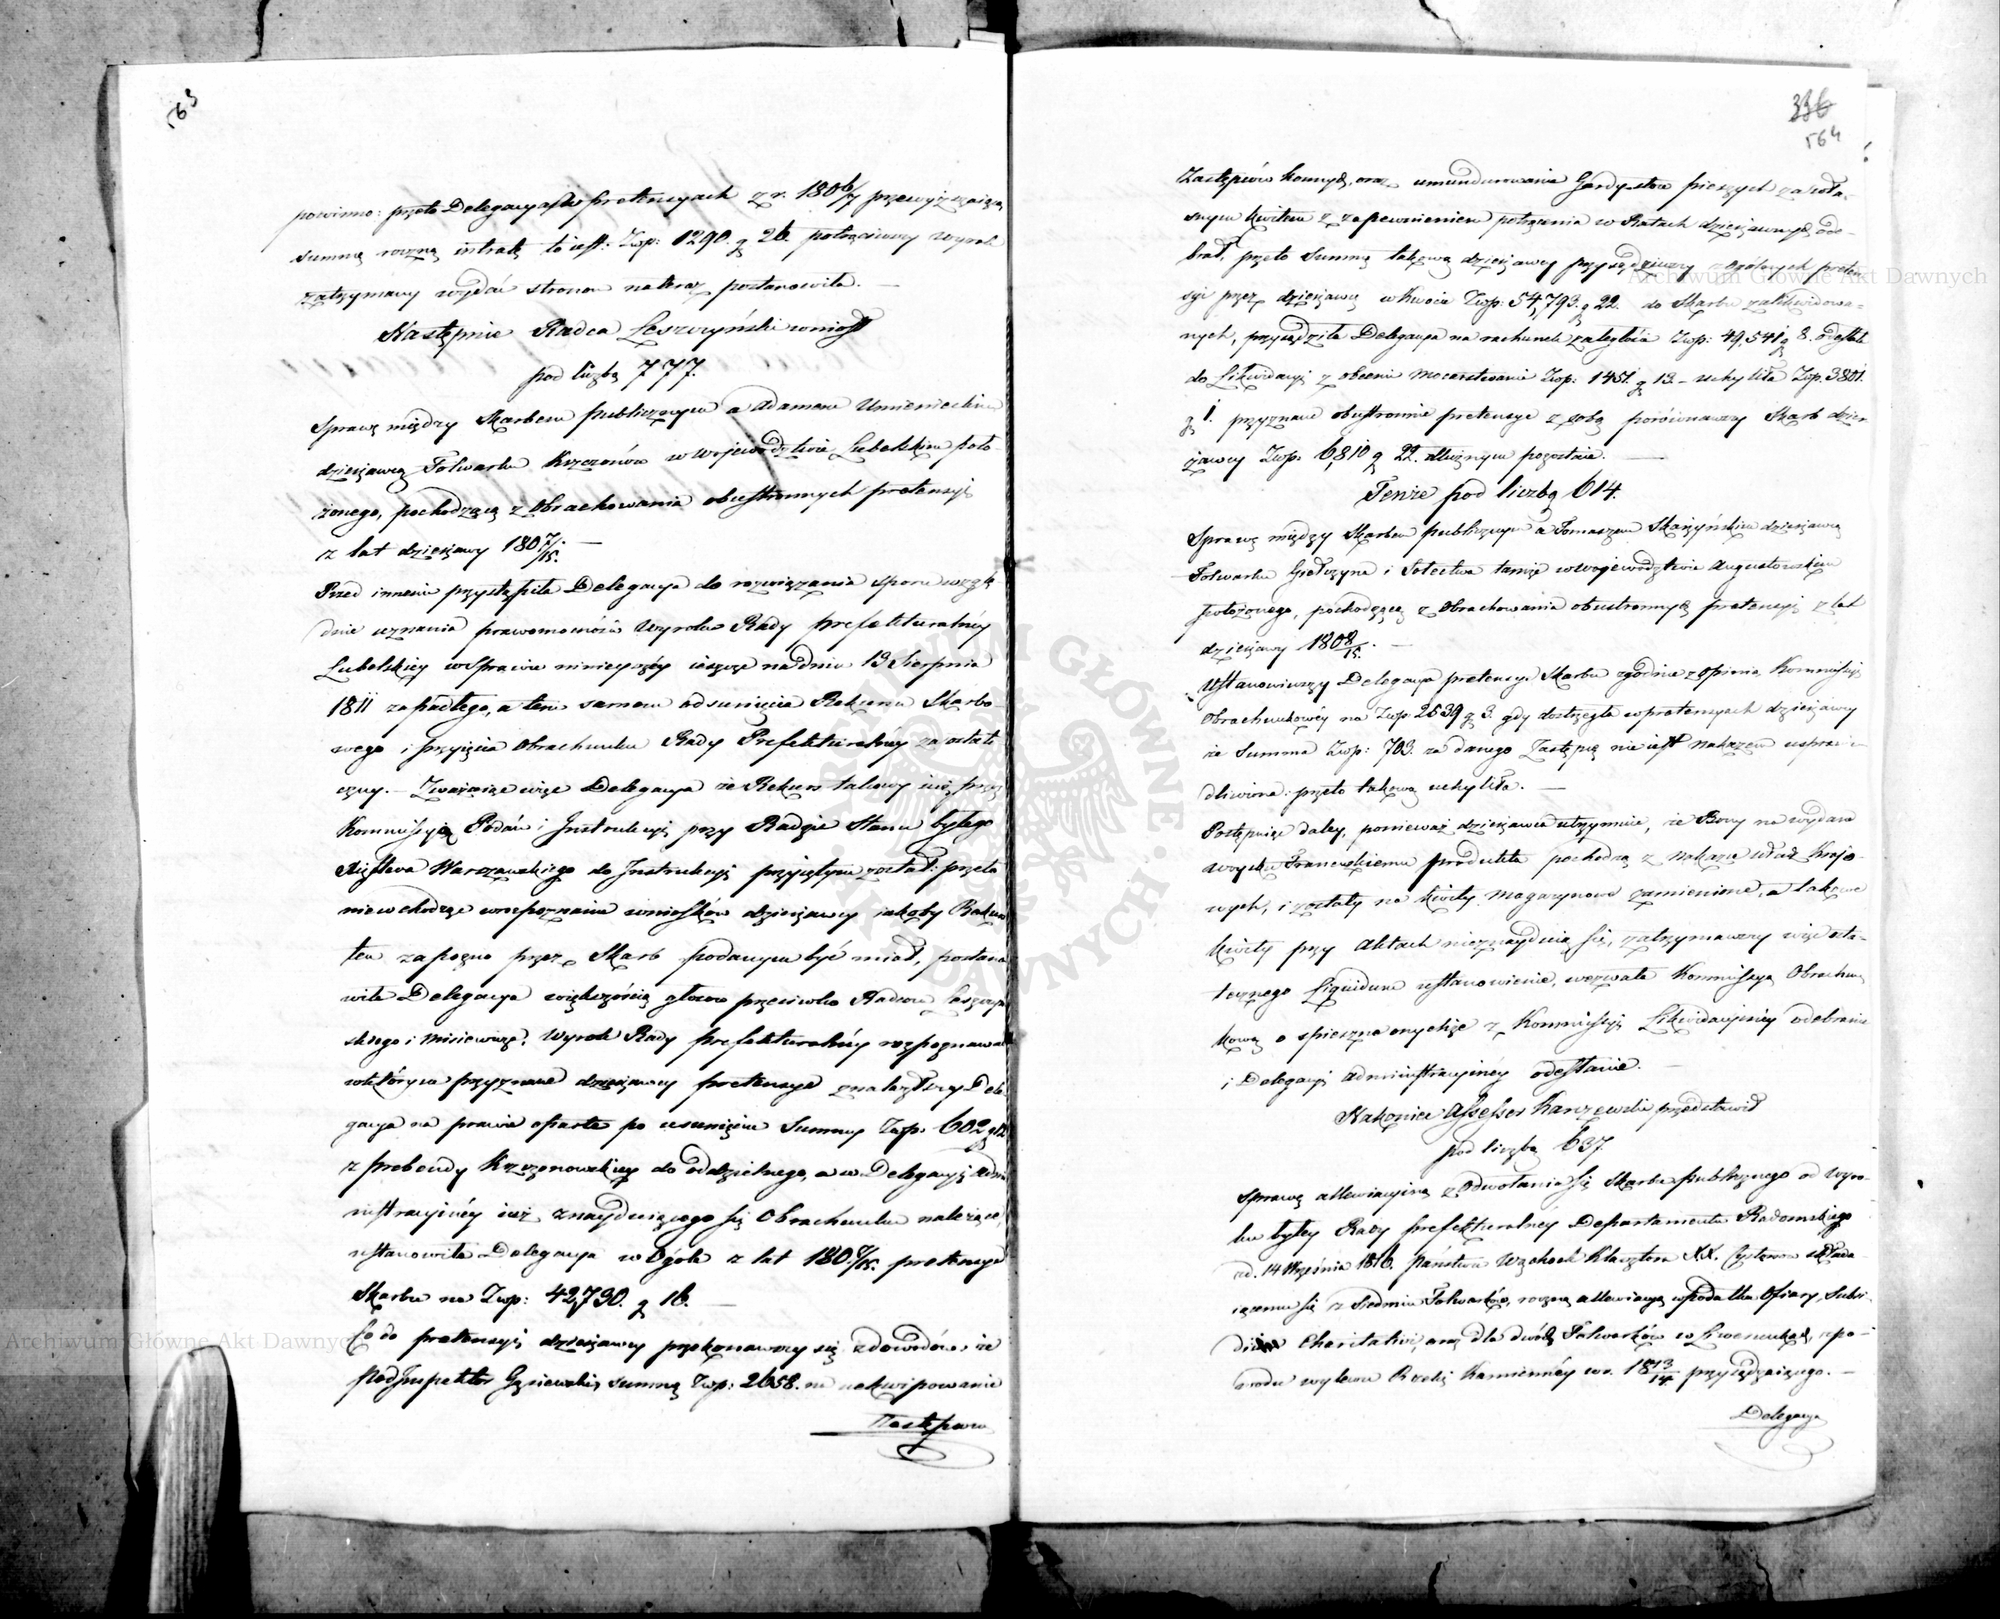 563
powinno: przeto Delegacya po pretensyach z r. 1806/7 przewyższaiącą
summę roczną intratę to iest: Złp: 1290. g 26. potrąciwszy wyrok
zatrzymany wydać stronom nateraz postanowiła. —
Następnie Radca Leszczyński wniosł
pod liczbą 777.
Sprawę między Skarbem publicznym a Adamem Umienieckim
dzierżawcą Folwarku Krzczonów w Wojewodztwie Lubelskim poło-
żonego, pochodzącą z Obrachowania obustronnych pretensyi
z lat dzierżawy 1807/15. —
Przed innemi przystąpiła Delegacya do rozwiązania sporu wzglę-
dnie uznania prawomocności Wyroku Rady prefekturalnéy
Lubelskiéy w Sprawie ninieyszéy ieszcze na dniu 13 Sierpnia
1811 zapadłego, a tem samem odsunięcia Rekursu Skarbo-
wego i przyięcia Obrachunku Rady Prefekturalnéy za ostate-
czny. — Zważaiąc więc Delegacya że Rekurs takowy iuż przez
Kommissyą Podań i Instrukcyi przy Radzie Stanu byłego
Xięstwa Warszawskiego do Instrukcyi przyiętym został: przeto
niewchodząc w rozpoznanie wniosków dzierżawcy iakoby Rekurs
ten zapozno przez Skarb podanym być miał, postano-
wiła Delegacya większością głosów przeciwko Radców Leszczyń-
skiego i Misiewicza, Wyrok Rady prefekturalnéy rozpoznawać
w którym przyznane dzierżawcy pretensye znalazłszy Dele-
gacya na prawie oparte po usunięciu Summy Złp: 602 g 12
z probendy Krzczonowskiéy do oddzielnego, a w Delegacyi Admi-
nistracyinéy iuż znayduiącego się Obrachunku należące,
ustanowiła Delegacya w Ogóle z lat 1807/15. pretensye
Skarbu na Złp: 42,730. g 16. —
Co do pretensyi dzierżawcy przekonawszy się z dowodów, że
PodInspektor Gąsiewski, summę Złp: 2658. na uekwipowanie
Zastępców
336
564
Zastępców konnych, oraz umundurowanie Gardystów pieszych za wła-
snym kwitem z zapewnieniem potrącenia w Ratach dzierżawnych ode-
brał, przeto Summę takową dzierżawcy przysądziwszy z ogólnych preten-
syi przez dzierżawcę w kwocie Złp: 54,793. g 22. do Skarbu zalikwidowa-
nych, przysądziła Delegacya na rachunek zaległości Złp: 49,541 g 8. odesłała
do Likwidacyi z obcemi Mocarstwami Złp: 1451. g 13. – uchyliła Złp. 3801.
g 1. przyznane obustronnie pretensye z sobą porównawszy Skarb dzier-
żawcy Złp: 6,810 g 22. dłużnym pozostaie. —
Tenże pod liczbą 614.
Sprawę między Skarbem publicznym a Tomaszem Skarzyńskim dzierżawcą
Folwarku Giełczyna i Sołectwa tamże w Wojewodztwie Augustowskim
położonego, pochodzącą z Obrachowania obustronnych pretensyi z lat
dzierżawy 1808/15. —
Ustanowiwszy Delegacya pretensye Skarbu zgodnie z opinią Kommissyi
Obrachunkowéy na Złp 2639 g 3. gdy dostrzegła w pretensyach dzierżawcy
że Summa Złp: 703. za danego Zastępcę nie iest nakazem usprawie-
dliwiona: przeto takową uchyliła. —
Postępuiąc daley, ponieważ dzierżawca utrzymuie, że Bony na wydane
woysku Francuskiemu produkta pochodzą z nakazu władz Krajo-
wych, i zostały na kwity Magazynowe zamienione, a takowe
kwity przy Aktach nieznayduią się, zatrzymawszy więc osta-
tecznego Liquidum ustanowienie, wezwała Kommissyą Obrachun-
kową o spieszne onychże z Kommissyi Likwidacyinéy odebranie
i Delegacyi Administracyinéy odesłanie. —
Nakoniec Assessor Karczewski przedstawił
pod liczbą 637.
Sprawę allewiacyiną z odwołania się Skarbu publicznego od Wyro-
ku byłey Rady prefekturalnéy Departamentu Radomskiego
zd. 14 Września 1816. państwu Wąchock Klasztoru XX. Cystersów składa-
iącemu się z Siedmiu Folwarków, roczną allewiacyą w Podatku Ofiary, Subsi-
dium Charitativi, oraz dla dwóch Folwarków w Liwerunkach, z po-
wodu wylewu Rzeki Kamiennéy w r. 1813/14 przysądzaiącego. —
Delegacya
Archiwum Główne Akt Dawnych
Archiwum Główne Akt Dawnych
ARCHIWUM GŁÓWNE AKT DAWNYCH